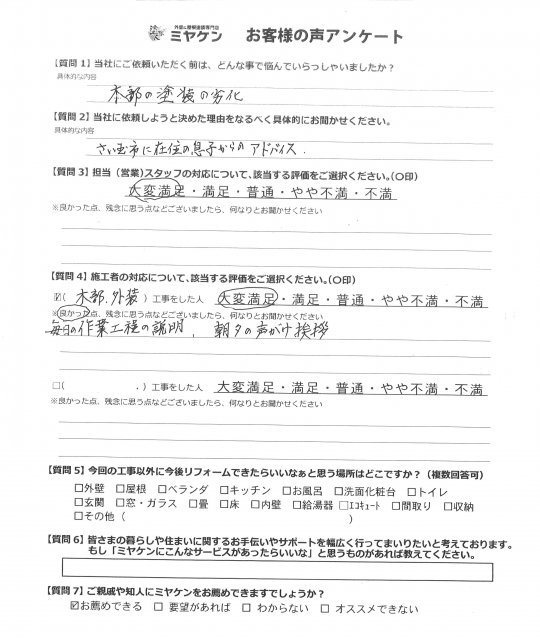 外壁と屋根塗装専門店
ミヤケン お客様の声アンケート
【質問 1】当社にご依頼いただく前は、どんな事で悩んでいらっしゃいましたか？
具体的な内容
木部の塗装の劣化
【質問 2】当社に依頼しようと決めた理由をなるべく具体的にお聞かせください。
具体的な内容
さい玉市に在住の息子からのアドバイス.
【質問 3】担当（営業)スタッフの対応について､該当する評価をご選択ください｡(〇印)
大変満足・満足・普通・やや不満・不満
※良かった点、残念に思う点などございましたら、何なりとお聞かせください
【質問 4】施工者の対応について､該当する評価をご選択ください｡(〇印)
☑( 木部.外装 ）工事をした人 大変満足・満足・普通・やや不満・不満
※良かった点、残念に思う点などございましたら、何なりとお聞かせください
毎日の作業工程の説明、朝夕の声がけ挨拶
□( . ）工事をした人 大変満足・満足・普通・やや不満・不満
※良かった点、残念に思う点などございましたら、何なりとお聞かせください
【質問 5】今回の工事以外に今後リフォームできたらいいなぁと思う場所はどこですか？（複数回答可）
□外壁 □屋根 □ベランダ □キッチン □お風呂 □洗面化粧台 □トイレ
□玄関 □窓・ガラス □畳 □床 □内壁 □給湯器 □ｴｺｷｭｰﾄ □間取り □収納
□その他（ ）
【質問 6】皆さまの暮らしや住まいに関するお手伝いやサポートを幅広く行ってまいりたいと考えております。
もし「ミヤケンにこんなサービスがあったらいいな」と思うものがあれば教えてください。
【質問 7】ご親戚や知人にミヤケンをお薦めできますでしょうか？
☑お薦めできる □ 要望があれば □ わからない □ オススメできない